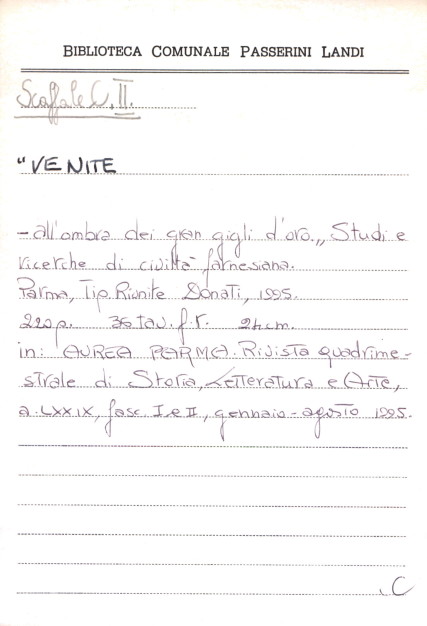 BIBLIOTECA COMUNALE PASSERINI LANDI
Scaffale C.II.
"VENITE
-all'ombra dei gran gigli d'oro„ Studi e
ricerche di civiltà farnesiana.
Parma, Tip. Riunite Donati, 1995.
220p. 36 tav. f.t. 24cm.
in: AUREA PARMA. Rivista quadrime-
strale di Storia, Letteratura e Arte,
a. LXXIX, fasc. I e II, gennaio-agosto 1995.
.C